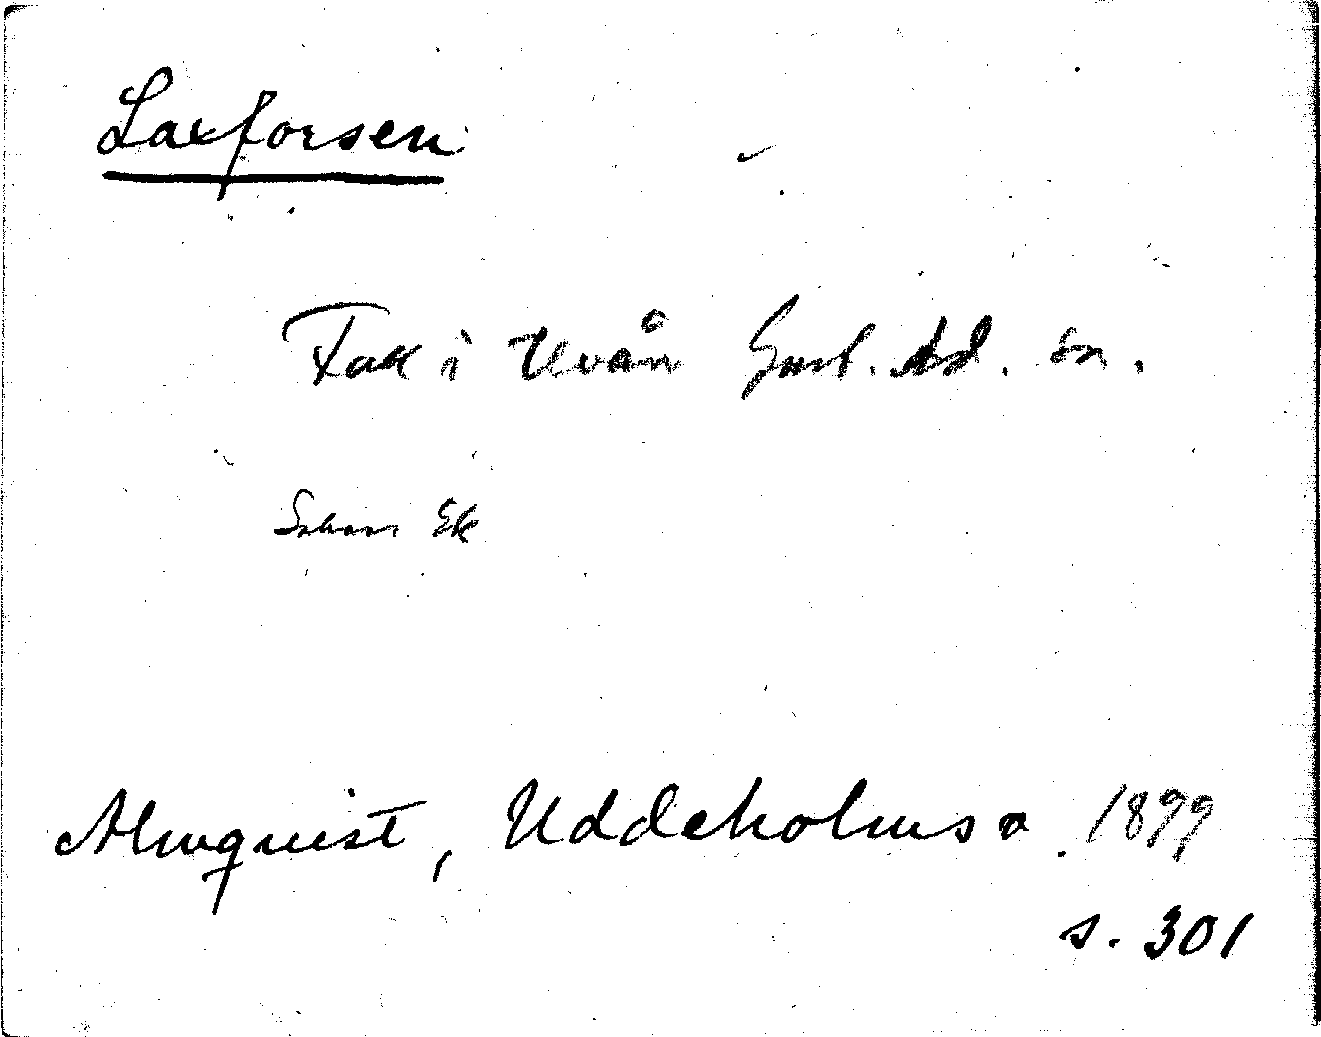 Laxforsen
Fall i Uvån Gust. Ad. sn.
Ek
Almquist, Uddeholms a. 1899
s. 301